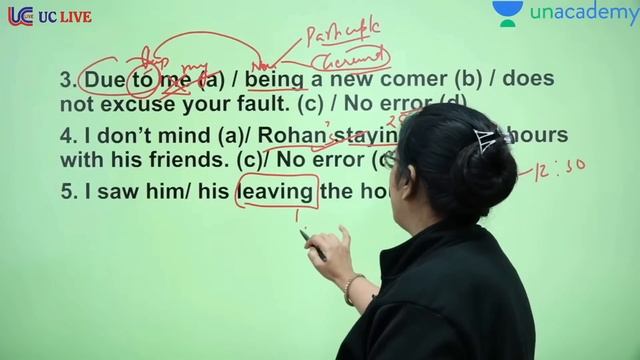 UC LIVE UC LIVE
unacademy
Participle
Gerund
my
3. Due to me (a) / being a new comer (b) / does
not excuse your fault. (c) / No error (d)
4. I don't mind (a)/ Rohan's hours
with his friends. (c)/ No error
12:30
5. I saw him/ his leaving the